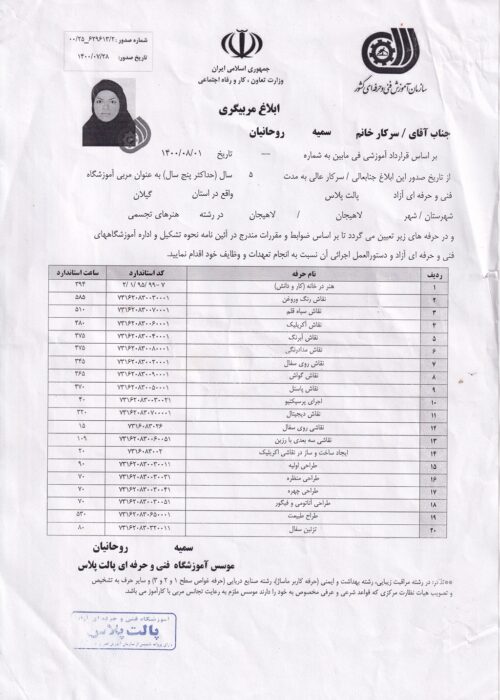 شماره صدور: ۶۳۹۶۱۳/۲_۰۰/۲۵
تاریخ صدور: ۱۴۰۰/۰۷/۲۸
جمهوری اسلامی ایران
وزارت تعاون، کار و رفاه اجتماعی
سازمان آموزش فنی و حرفه ای کشور
ابلاغ مربیگری
جناب آقای / سرکار خانم سمیه روحانیان
بر اساس قرارداد آموزشی فی مابین به شماره — تاریخ ۱۴۰۰/۰۸/۰۱
از تاریخ صدور این ابلاغ جنابعالی / سرکار عالی به مدت ۵ سال (حداکثر پنج سال) به عنوان مربی آموزشگاه
فنی و حرفه ای آزاد پالت پلاس واقع در استان گیلان
شهرستان / شهر لاهیجان / لاهیجان در رشته هنرهای تجسمی
و در حرفه های زیر تعیین می گردد تا بر اساس ضوابط و مقررات مندرج در آئین نامه نحوه تشکیل و اداره آموزشگاههای
فنی و حرفه ای آزاد و دستورالعمل اجرائی آن نسبت به انجام تعهدات و وظایف خود اقدام نمایید.
ردیف نام حرفه کد استاندارد ساعت استاندارد
۱ هنر در خانه (کار و دانش) ۳۹۴
۲ نقاش رنگ وروغن ۷۳۱۶۲۰۸۳۰۰۳۰۰۰۱ ۵۸۵
۳ نقاش سیاه قلم ۷۳۱۶۲۰۸۳۰۰۷۰۰۰۱ ۵۱۰
۴ نقاش آکریلیک ۷۳۱۶۲۰۸۳۰۰۶۰۰۰۱ ۴۸۰
۵ نقاش آبرنگ ۷۳۱۶۲۰۸۳۰۰۴۰۰۰۱ ۴۷۵
۶ نقاش مدادرنگی ۷۳۱۶۲۰۸۳۰۰۸۰۰۰۱ ۳۷۵
۷ نقاش روی سفال ۷۳۱۶۲۰۸۳۰۰۲۰۰۰۱ ۳۴۵
۸ نقاش گواش ۷۳۱۶۲۰۸۳۰۰۹۰۰۰۱ ۲۶۵
۹ نقاش پاستل ۷۳۱۶۲۰۸۳۰۰۵۰۰۰۱ ۴۷۰
۱۰ اجرای پرسپکتیو ۷۳۱۶۲۰۸۳۰۰۳۰۰۲۱ ۴۰
۱۱ نقاش دیجیتال ۷۳۱۶۲۰۸۳۰۷۰۰۰۰۱ ۳۲۰
۱۲ نقاشی روی سفال ۷۳۱۶۰۸۳۰۲۶ ۱۵
۱۳ نقاشی سه بعدی با رزین ۷۳۱۶۲۰۸۳۰۰۶۰۰۵۱ ۱۰۹
۱۴ ایجاد ساخت و ساز در نقاشی آکریلیک ۷۳۱۶۰۸۳۰۰۲ ۲۰
۱۵ طراحی اولیه ۷۳۱۶۲۰۸۳۰۰۳۰۰۱۱ ۹۰
۱۶ طراحی منظره ۷۳۱۶۲۰۸۳۰۰۳۰۰۳۱ ۷۰
۱۷ طراحی چهره ۷۳۱۶۲۰۸۳۰۰۳۰۰۴۱ ۷۰
۱۸ طراحی آناتومی و فیگور ۷۳۱۶۲۰۸۳۰۰۳۰۰۵۱ ۷۰
۱۹ طراح طبیعت ۷۳۱۶۲۰۸۳۰۶۵۰۰۰۱ ۵۳۰
۲۰ تزئین سفال ۷۳۱۶۲۰۸۳۰۳۲۰۰۱۱ ۸۰
سمیه روحانیان
موسس آموزشگاه فنی و حرفه ای پالت پلاس
در رشته مراقبت زیبایی، رشته بهداشت و ایمنی (حرفه کاربر ماساژ)، رشته صنایع دریایی (حرفه غواص سطح ۱ و ۲ و ۳) و سایر حرف به تشخیص
و تصویب هیات نظارت مرکزی که قواعد شرعی و عرفی مخصوص به خود را دارند موسس ملزم به رعایت تجانس مربی با کارآموز می باشد.
آموزشگاه فنی و حرفه ای آزاد
پالت پلاس